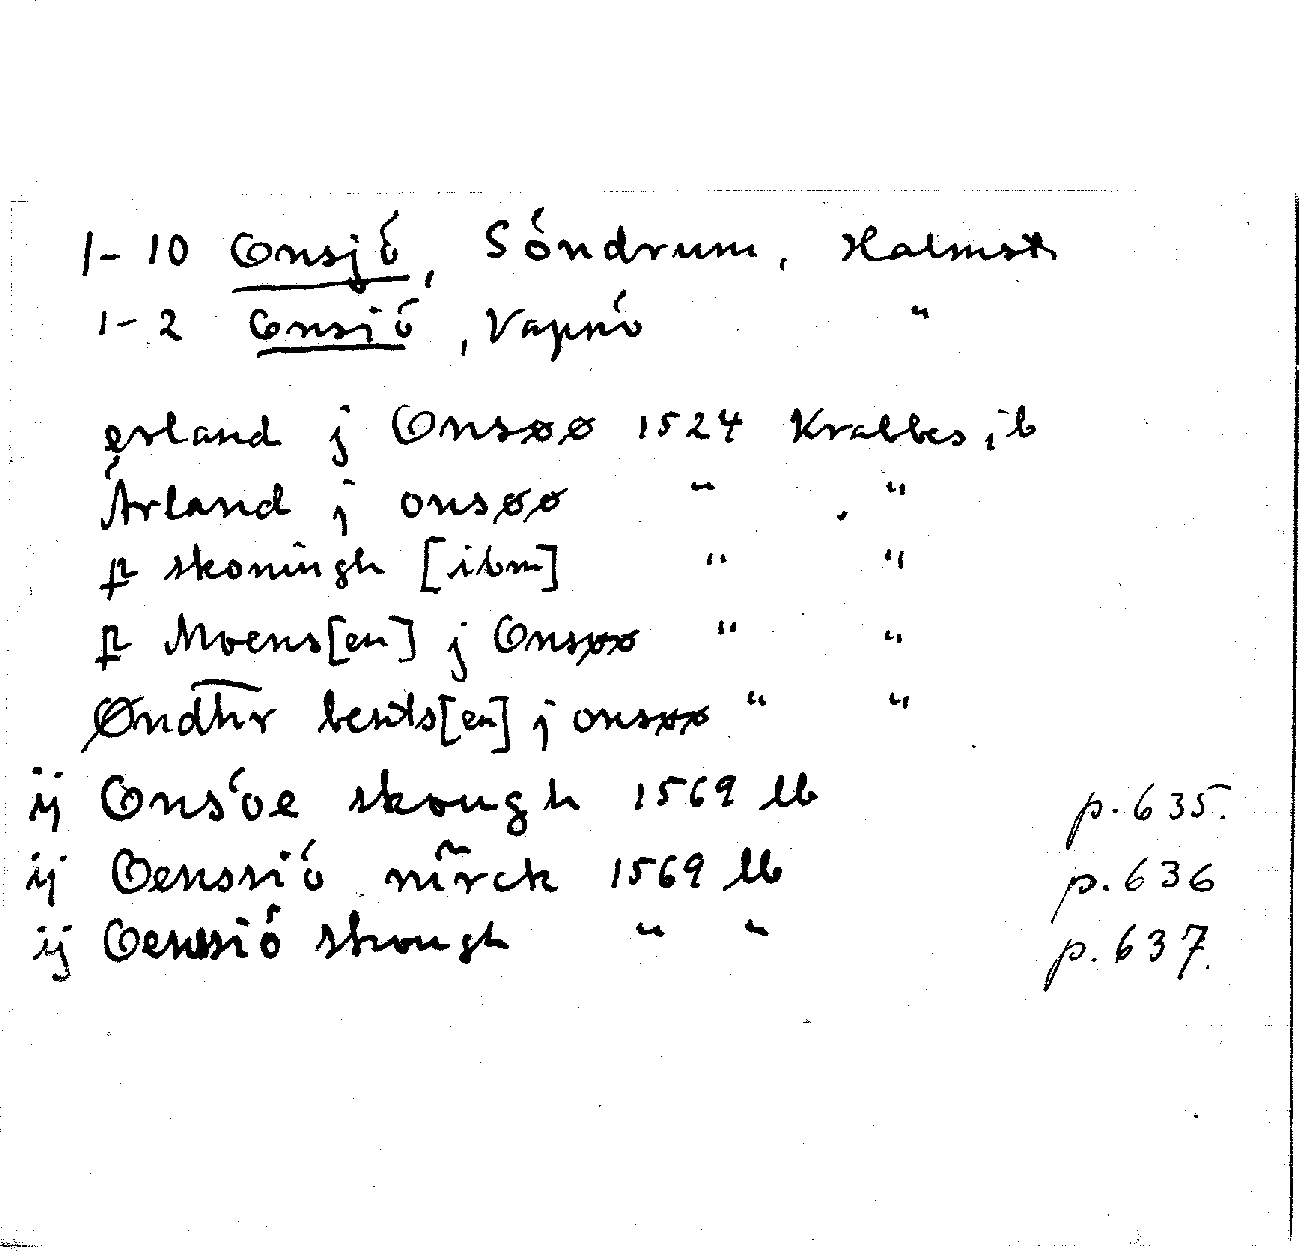 1-10 Onsjö, Söndrum, Halmst
1-2 Onsjö, Vapnö "
erland j Onsøø 1524 Krabbes jb
Árland j onsøø " "
p skoningh [ibm] " "
p Moens[en] j Onsøø " "
Øndhr bents[en] j onsøø " "
ij Onsöe skough 1569 lb p. 635.
ij Oenssiö 1569 lb p. 636
ij Oenssiö skough " " p. 637.